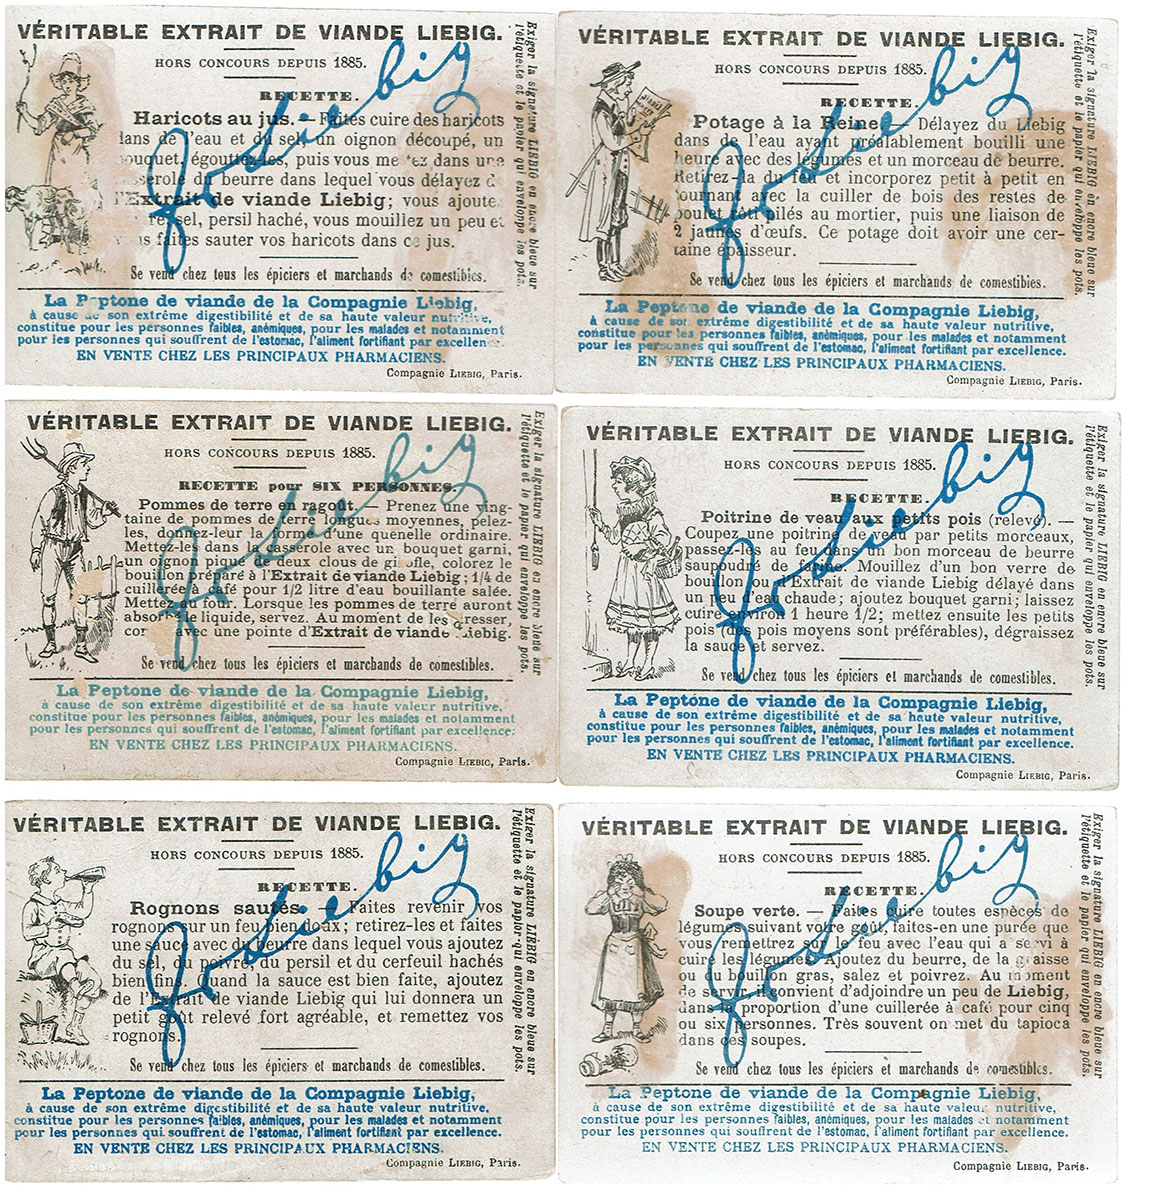 VÉRITABLE EXTRAIT DE VIANDE LIEBIG.
HORS CONCOURS DEPUIS 1885.
RECETTE.
Haricots au jus. — Faites cuire des haricots
dans de l'eau et du sel, un oignon découpé, un
bouquet, égouttez-les, puis vous mettez dans une
casserole du beurre dans lequel vous délayez
l'Extrait de viande Liebig; vous ajoutez
sel, persil haché, vous mouillez un peu et
vous faites sauter vos haricots dans ce jus.
Se vend chez tous les épiciers et marchands de comestibles.
La Peptone de viande de la Compagnie Liebig,
à cause de son extrême digestibilité et de sa haute valeur nutritive,
constitue pour les personnes faibles, anémiques, pour les malades et notamment
pour les personnes qui souffrent de l'estomac, l'aliment fortifiant par excellence.
EN VENTE CHEZ LES PRINCIPAUX PHARMACIENS.
Compagnie LIEBIG, Paris.
Exiger la signature LIEBIG en encre bleue sur
l'étiquette et le papier qui enveloppe les pots.
J. v. Liebig
VÉRITABLE EXTRAIT DE VIANDE LIEBIG.
HORS CONCOURS DEPUIS 1885.
RECETTE.
Potage à la Reine. — Délayez du Liebig
dans de l'eau ayant préalablement bouilli une
heure avec des légumes et un morceau de beurre.
Retirez-la du feu et incorporez petit à petit en
tournant avec la cuiller de bois des restes de
poulet rôti pilés au mortier, puis une liaison de
2 jaunes d'œufs. Ce potage doit avoir une cer-
taine épaisseur.
Se vend chez tous les épiciers et marchands de comestibles.
La Peptone de viande de la Compagnie Liebig,
à cause de son extrême digestibilité et de sa haute valeur nutritive,
constitue pour les personnes faibles, anémiques, pour les malades et notamment
pour les personnes qui souffrent de l'estomac, l'aliment fortifiant par excellence.
EN VENTE CHEZ LES PRINCIPAUX PHARMACIENS.
Compagnie LIEBIG, Paris.
Exiger la signature LIEBIG en encre bleue sur
l'étiquette et le papier qui enveloppe les pots.
J. v. Liebig
VÉRITABLE EXTRAIT DE VIANDE LIEBIG.
HORS CONCOURS DEPUIS 1885.
RECETTE pour SIX PERSONNES.
Pommes de terre en ragoût. — Prenez une ving-
taine de pommes de terre longues moyennes, pelez-
les, donnez-leur la forme d'une quenelle ordinaire.
Mettez-les dans la casserole avec un bouquet garni,
un oignon piqué de deux clous de girofle, colorez le
bouillon préparé à l'Extrait de viande Liebig; 1/4 de
cuillerée à café pour 1/2 litre d'eau bouillante salée.
Mettez au four. Lorsque les pommes de terre auront
absorbé le liquide, servez. Au moment de les dresser,
avec une pointe d'Extrait de viande Liebig.
Se vend chez tous les épiciers et marchands de comestibles.
La Peptone de viande de la Compagnie Liebig,
à cause de son extrême digestibilité et de sa haute valeur nutritive,
constitue pour les personnes faibles, anémiques, pour les malades et notamment
pour les personnes qui souffrent de l'estomac, l'aliment fortifiant par excellence.
EN VENTE CHEZ LES PRINCIPAUX PHARMACIENS.
Compagnie LIEBIG, Paris.
Exiger la signature LIEBIG en encre bleue sur
l'étiquette et le papier qui enveloppe les pots.
J. v. Liebig
VÉRITABLE EXTRAIT DE VIANDE LIEBIG.
HORS CONCOURS DEPUIS 1885.
RECETTE.
Poitrine de veau aux petits pois (relevé). —
Coupez une poitrine de veau par petits morceaux,
passez-les au feu dans un bon morceau de beurre
saupoudré de farine. Mouillez d'un bon verre de
bouillon ou d'Extrait de viande Liebig délayé dans
un peu d'eau chaude; ajoutez bouquet garni; laissez
cuire environ 1 heure 1/2; mettez ensuite les petits
pois (des pois moyens sont préférables), dégraissez
la sauce et servez.
Se vend chez tous les épiciers et marchands de comestibles.
La Peptone de viande de la Compagnie Liebig,
à cause de son extrême digestibilité et de sa haute valeur nutritive,
constitue pour les personnes faibles, anémiques, pour les malades et notamment
pour les personnes qui souffrent de l'estomac, l'aliment fortifiant par excellence.
EN VENTE CHEZ LES PRINCIPAUX PHARMACIENS.
Compagnie LIEBIG, Paris.
Exiger la signature LIEBIG en encre bleue sur
l'étiquette et le papier qui enveloppe les pots.
J. v. Liebig
VÉRITABLE EXTRAIT DE VIANDE LIEBIG.
HORS CONCOURS DEPUIS 1885.
RECETTE.
Rognons sautés. — Faites revenir vos
rognons sur un feu bien doux; retirez-les et faites
une sauce avec du beurre dans lequel vous ajoutez
du sel, du poivre, du persil et du cerfeuil hachés
bien fins. Quand la sauce est bien faite, ajoutez
de l'Extrait de viande Liebig qui lui donnera un
petit goût relevé fort agréable, et remettez vos
rognons.
Se vend chez tous les épiciers et marchands de comestibles.
La Peptone de viande de la Compagnie Liebig,
à cause de son extrême digestibilité et de sa haute valeur nutritive,
constitue pour les personnes faibles, anémiques, pour les malades et notamment
pour les personnes qui souffrent de l'estomac, l'aliment fortifiant par excellence.
EN VENTE CHEZ LES PRINCIPAUX PHARMACIENS.
Compagnie LIEBIG, Paris.
Exiger la signature LIEBIG en encre bleue sur
l'étiquette et le papier qui enveloppe les pots.
J. v. Liebig
VÉRITABLE EXTRAIT DE VIANDE LIEBIG.
HORS CONCOURS DEPUIS 1885.
RECETTE.
Soupe verte. — Faites cuire toutes espèces de
légumes suivant votre goût, faites-en une purée que
vous remettrez sur le feu avec l'eau qui a servi à
cuire les légumes. Ajoutez du beurre, de la graisse
ou du bouillon gras, salez et poivrez. Au moment
de servir, il convient d'adjoindre un peu de Liebig,
dans la proportion d'une cuillerée à café pour cinq
ou six personnes. Très souvent on met du tapioca
dans ces soupes.
Se vend chez tous les épiciers et marchands de comestibles.
La Peptone de viande de la Compagnie Liebig,
à cause de son extrême digestibilité et de sa haute valeur nutritive,
constitue pour les personnes faibles, anémiques, pour les malades et notamment
pour les personnes qui souffrent de l'estomac, l'aliment fortifiant par excellence.
EN VENTE CHEZ LES PRINCIPAUX PHARMACIENS.
Compagnie LIEBIG, Paris.
Exiger la signature LIEBIG en encre bleue sur
l'étiquette et le papier qui enveloppe les pots.
J. v. Liebig